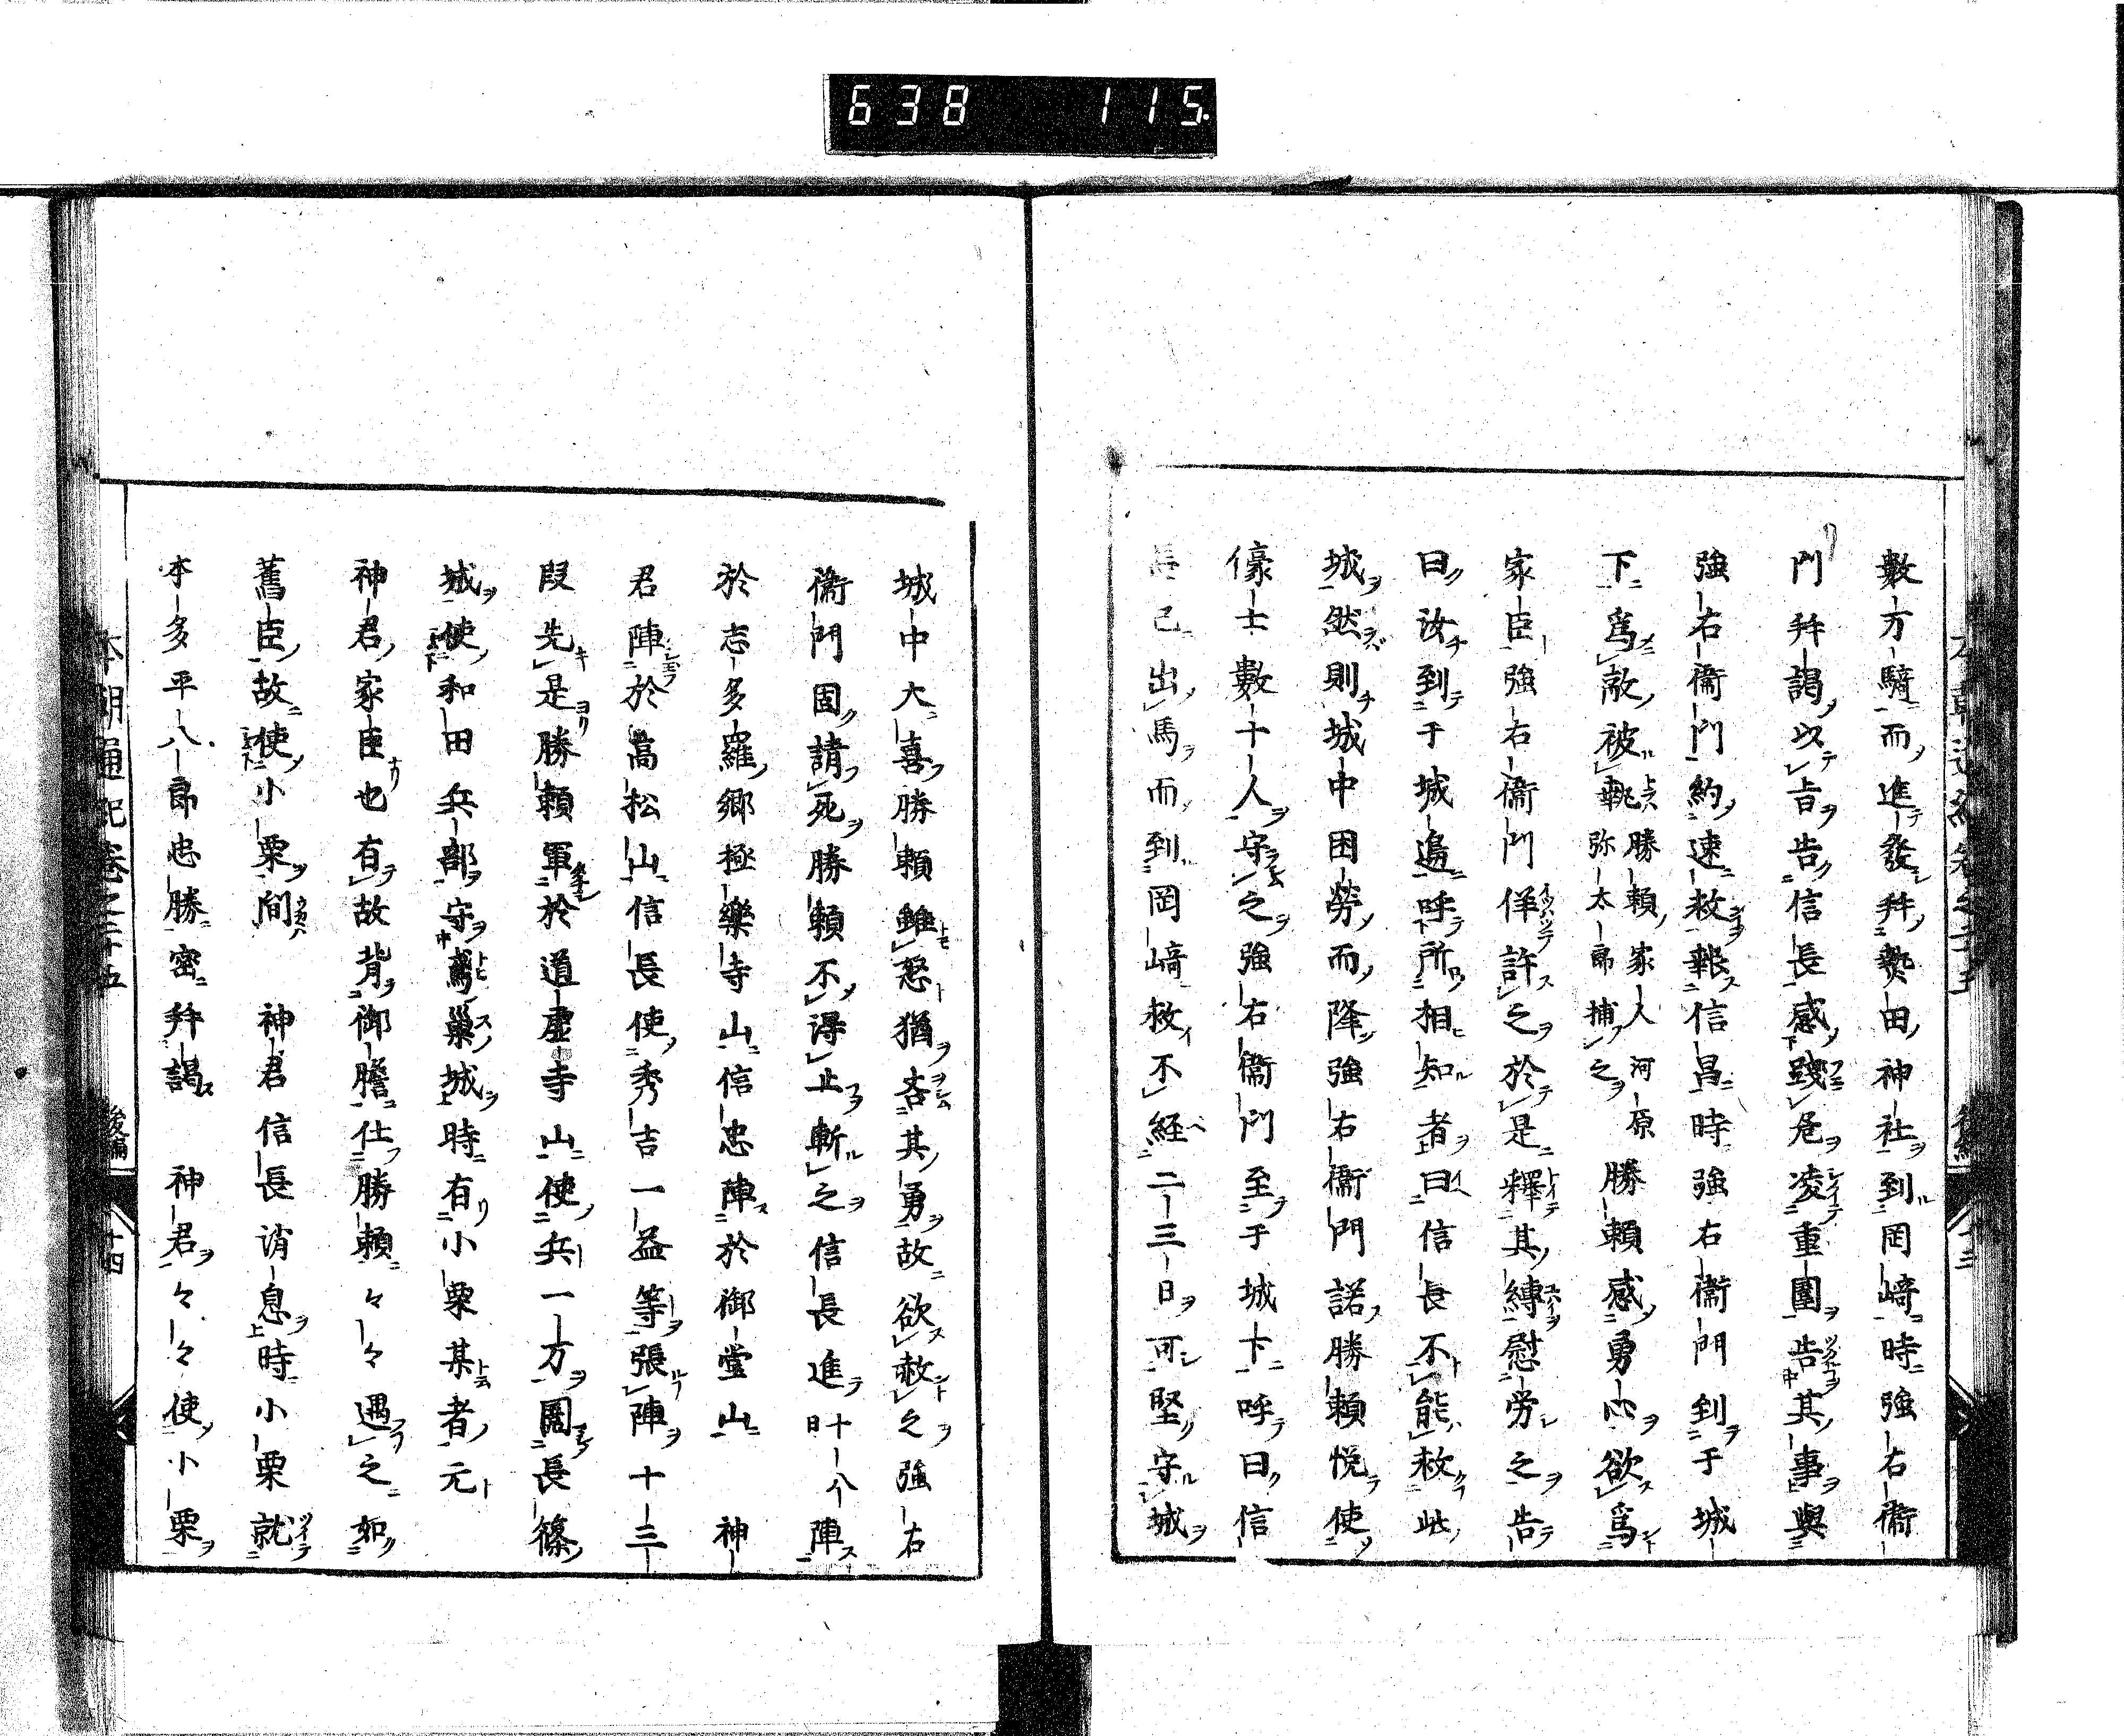 638 115.
數万騎而進發拜熱田神社到岡﨑時強右衞
門拜謁以旨告信長感踐危凌重圍告其事與
強右衞門約速救報信昌時強右衞門到于城
下爲敵被執勝賴家人河原弥太郎捕之勝賴感勇心欲爲
家臣強右衞門佯許之於是釋其縛慰労之告
曰汝到于城邊呼所相知者曰信長不能救此
城然則城中困勞而降強右衞門諾勝賴悅使
傣士數十人守之強右衞門至于城下呼曰信
長已出馬而到岡﨑救不経二三日可堅守城
本朝通紀卷之二十五 後編 十三
城中大喜勝賴雖怒猶吝其勇故欲赦之強右
衞門固請死勝賴不得止斬之信長進十八日陣
於志多羅郷極樂寺山信忠陣於御堂山 神
君陣於高松山信長使秀吉一益等張陣十三
段先是勝賴軍於道虚寺山使兵一方圍長篠
城使和田兵部守鳶巢城時有小栗某者元
神君家臣也有故背御膽仕勝賴々々遇之如
舊臣故使小栗間 神君信長消息時小栗就
本多平八郎忠勝密拜謁 神君々々使小栗
本朝通紀卷之二十五 後編 十四